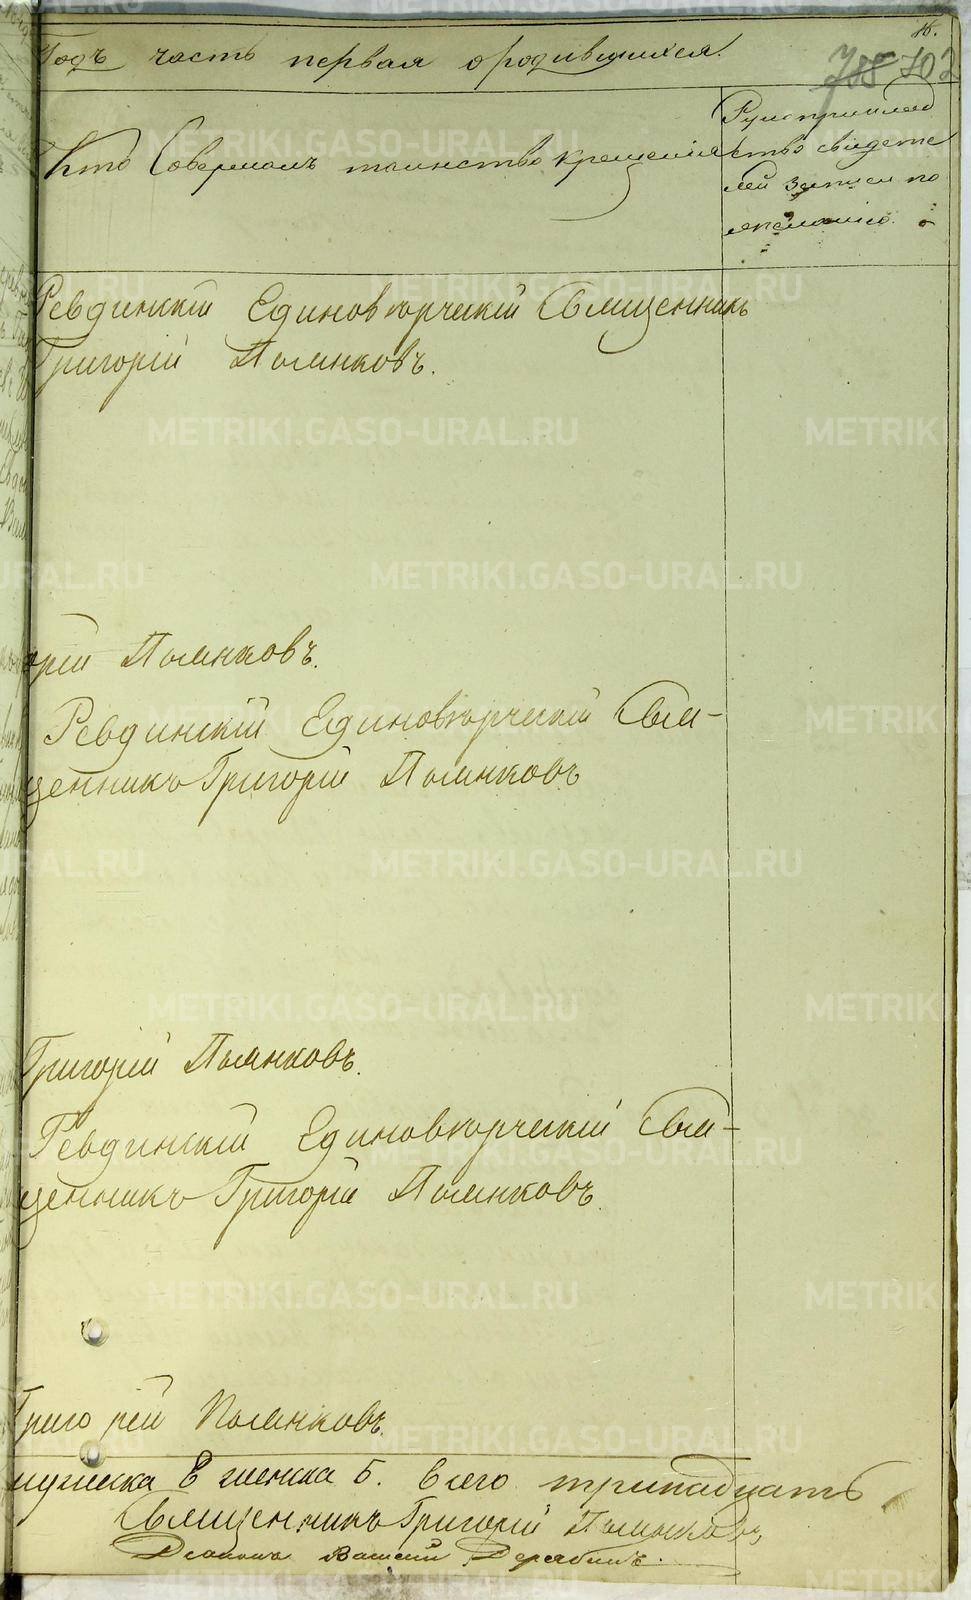 16.
Годъ часть первая о родившихся.
785 702
Кто Совершалъ таинство крещенія
Рукоприклад
ство свидете
лей записи по
желанію.
Ревдинскій Единоверческій Священникъ
Григорій Пьянковъ.
орій Пьянковъ.
Ревдинскій Единоверческій Свя-
щенникъ Григорій Пьянковъ
Григорій Пьянковъ.
Ревдинскій Единоверческій Свя-
щенникъ Григорій Пьянковъ
Григорій Пьянковъ.
мужеска 8 женска 5. Всего тринадцать
Священникъ Григорій Пьянковъ
Діаконъ Василій Дерябинъ.
METRIKI.GASO-URAL.RU